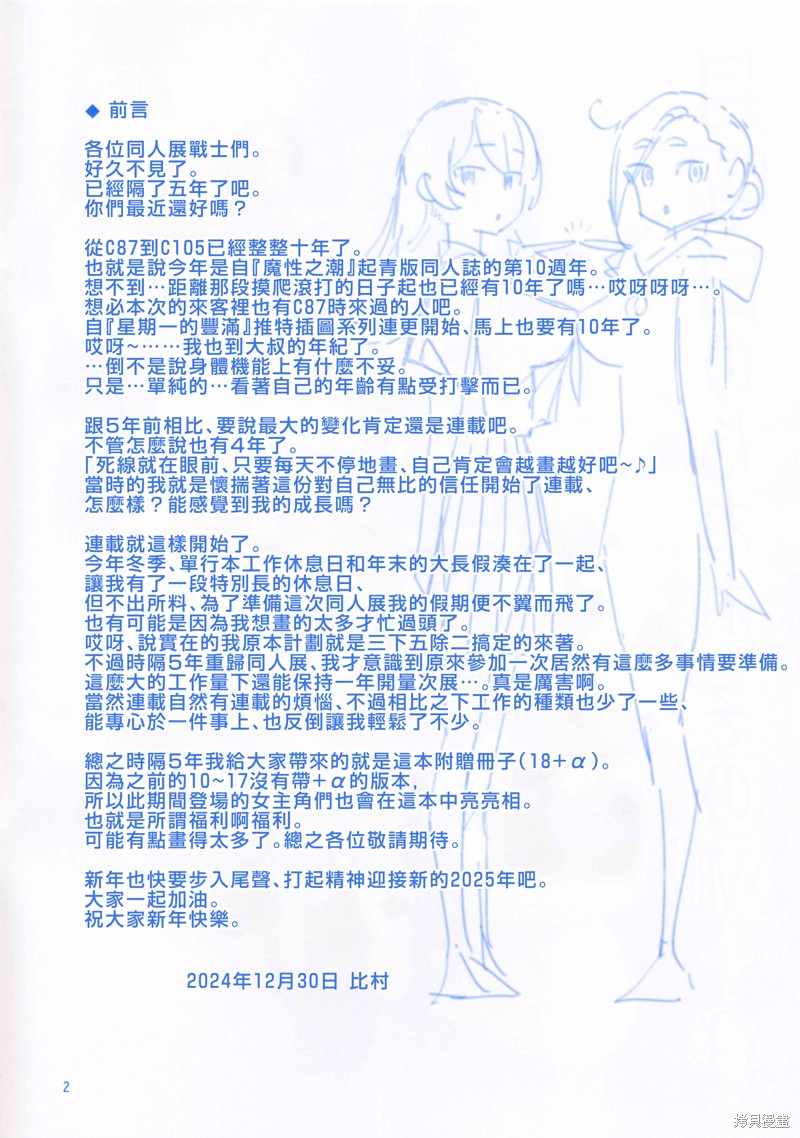 ◆ 前言
各位同人展戰士們。
好久不見了。
已經隔了五年了吧。
你們最近還好嗎？
從C87到C105已經整整十年了。
也就是說今年是自『魔性之潮』起青版同人誌的第10週年。
想不到…距離那段摸爬滾打的日子起也已經有10年了嗎…哎呀呀呀…。
想必本次的來客裡也有C87時來過的人吧。
自『星期一的豐滿』推特插圖系列連更開始、馬上也要有10年了。
哎呀~……我也到大叔的年紀了。
…倒不是說身體機能上有什麼不妥。
只是…單純的…看著自己的年齡有點受打擊而已。
跟5年前相比、要說最大的變化肯定還是連載吧。
不管怎麼說也有4年了。
「死線就在眼前、只要每天不停地畫、自己肯定會越畫越好吧~♪」
當時的我就是懷揣著這份對自己無比的信任開始了連載、
怎麼樣？能感覺到我的成長嗎？
連載就這樣開始了。
今年冬季、單行本工作休息日和年末的大長假湊在了一起、
讓我有了一段特別長的休息日、
但不出所料、為了準備這次同人展我的假期便不翼而飛了。
也有可能是因為我想畫的太多才忙過頭了。
哎呀、說實在的我原本計劃就是三下五除二搞定的來著。
不過時隔5年重歸同人展、我才意識到原來參加一次居然有這麼多事情要準備。
這麼大的工作量下還能保持一年開量次展…。真是厲害啊。
當然連載自然有連載的煩惱、不過相比之下工作的種類也少了一些、
能專心於一件事上、也反倒讓我輕鬆了不少。
總之時隔5年我給大家帶來的就是這本附贈冊子(18+α)。
因為之前的10~17沒有帶+α的版本,
所以此期間登場的女主角們也會在這本中亮亮相。
也就是所謂福利啊福利。
可能有點畫得太多了。總之各位敬請期待。
新年也快要步入尾聲、打起精神迎接新的2025年吧。
大家一起加油。
祝大家新年快樂。
2024年12月30日 比村
2
拷貝漫畫